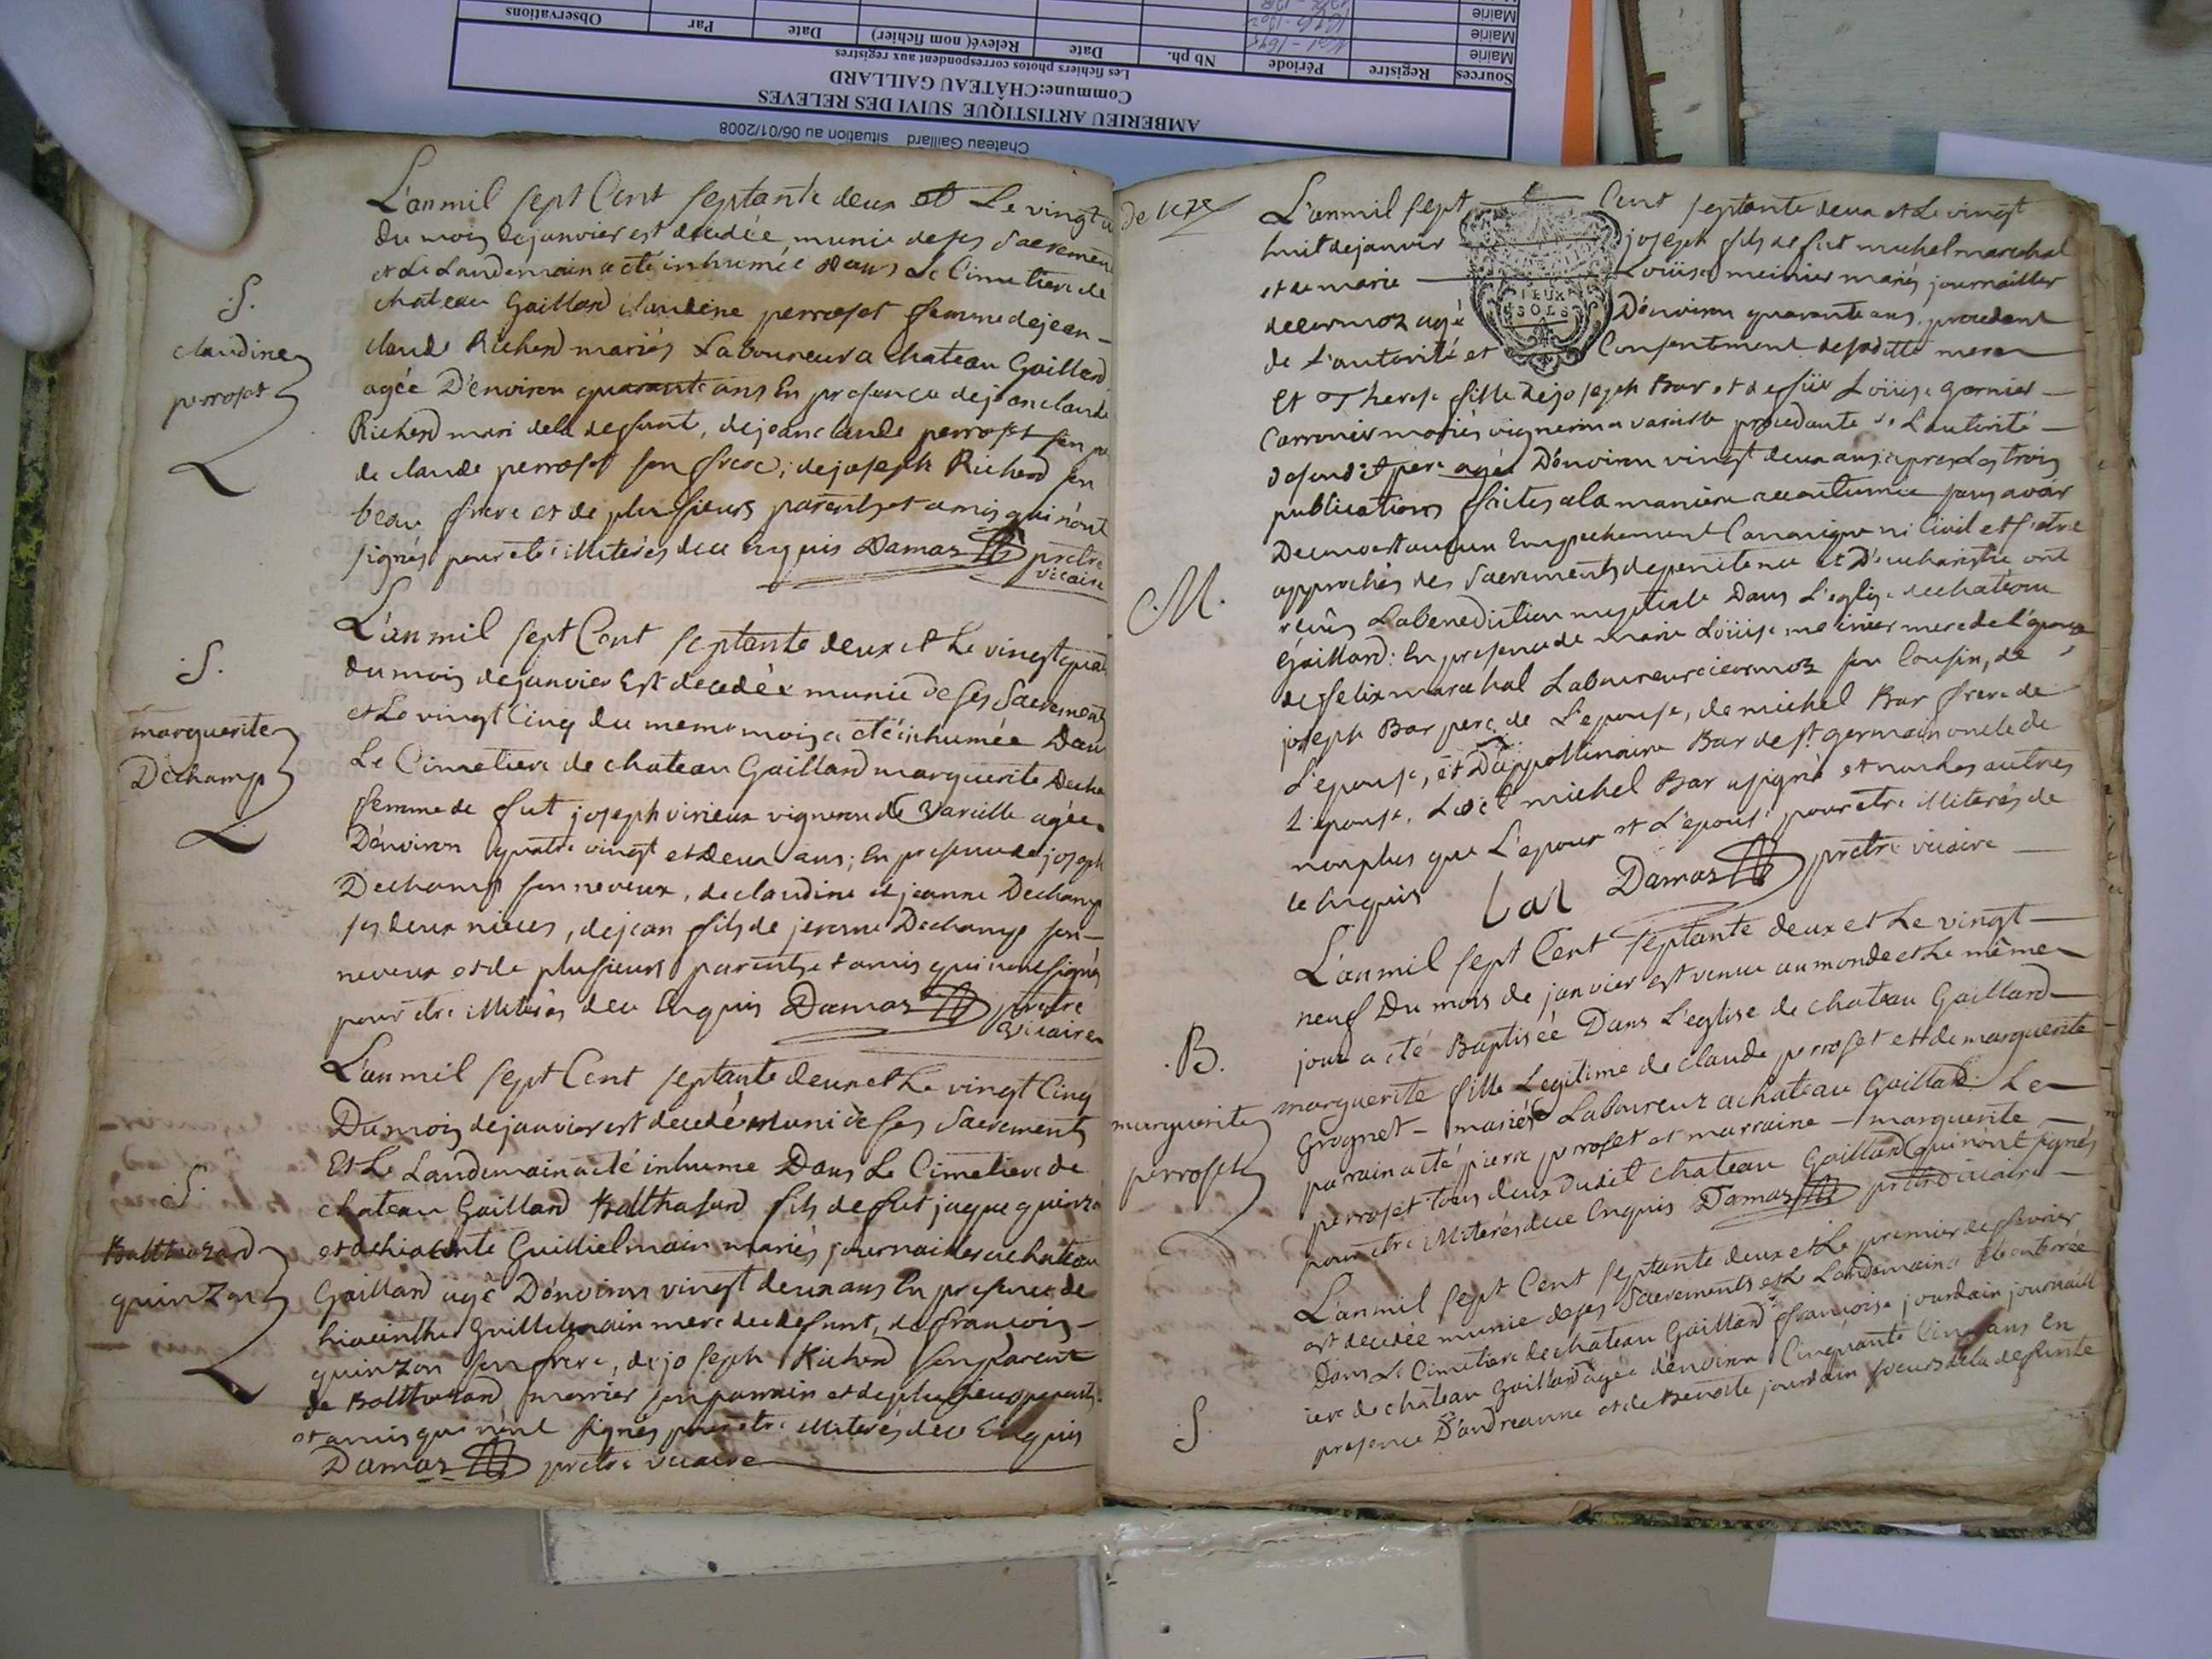 Chateau Gaillard situation au 06/01/2008
AMBERIEU ARTISTIQUE SUIVI DES RELEVES
Commune:CHÂTEAU GAILLARD
Les fichiers photos correspondent aux registres
Sources Registre Période Nb ph. Date Relevé( nom fichier) Date Par Observations
Mairie
Mairie
Mairie
L'an mil sept Cent septante deux et Le vingt
du mois de janvier est decedée munie de ses Sacremen
et Le Landemain a eté inhumée dans Le Cimetiere de
chateau Gaillard claudine perroset femme de jean-
claude Richerd mariés Laboureur a chateau Gaillard
agée D'environ quarante ans En presence de jean claude
Richerd mari de la defunt, de jean claude perroset son
de claude perroset son frere, de joseph Richerd son
beau frere et de plusieurs parents et amis qui n'ont
signés pour etre illiterés de ce Enquis Damas prêtre
vicaire
S.
claudine
perroset
L'an mil sept Cent septante deux et Le vingt quat
du mois de janvier Est decedée munie de ses Sacrements
et Le vingt Cinq du meme mois a eté inhumée Dans
Le Cimetiere de chateau Gaillard marguerite Decha
femme de fut joseph virieux vigneron de Vareille agée
D'environ quatre vingt et deux ans; En presence de joseph
Dechamp son neveux, de claudine et jeanne Dechamp
ses deux nieces, de jean fils de jerome Dechamp son-
neveux et de plusieurs parents et amis qui n'ont signés
pour etre illiterés de ce Enquis Damas prêtre
Vicaire
S.
marguerite
Dechamp
L'an mil sept Cent septante deux et Le vingt Cinq
Du mois de janvier est decedé muni de ses Sacrements
Et Le Landemain a eté inhumé Dans Le Cimetiere de
chateau Gaillard Balthasard fils de fut jaque quinzon
et de hiacinte Guillielmain mariés journaliers a chateau
Gaillard agé D'environ vingt deux ans En presence de
hiacinthe Guillelmain mere du defunt, de françois-
quinzon son frere, de joseph Richerd son parent
de Balthazard merrier son parrain et de plusieurs parents
et amis qui n'ont signés pour etre illiterés de ce Enquis
Damas prêtre vicaire
S.
Balthazard
quinzon
L'an mil sept Cent septante deux et Le vingt
huit de janvier joseph fils de fut michel marechal
et de marie Loüise meinier mariés journallier
de cormoz agé D'environ quarante ans, procedant
de L'autorité et Consentment de sa ditte mere
DEUX SOLS
Et Therese fille de joseph Bar et de füe Loüise garnier
mariés vigneron a vareille procedante de L'autorité
de son dit pere agée D'environ vingt deux ans; apres Les trois
publications faites a la maniere accoutumée sans avoir
Decouvert aucun Empechement Canonique ni Civil et s'etre
approchés des Sacrements de penitence et D'eucharistie ont
reçûs La benediction nuptiale Dans L'eglise de chateau
Gaillard: En presence de marie Loüise meinier mere de l'epoux,
de felix marechal Laboureur a cormoz son Cousin, de
joseph Bar pere de L'epouse, de michel Bar frere de
L'epouse, et D'appollinaire Bar de st germain oncle de
L'epouse. Ledit michel Bar a signé et non Les autres
non plus que L'epoux et L'epouse pour etre illiterés de
ce Enquis bar Damas prêtre vicaire
M.
L'an mil sept Cent septante deux et Le vingt
neuf Du mois de janvier est venue au monde et Le même
jour a eté Baptisée Dans L'eglise de chateau Gaillard
marguerite fille Legitime de claude perroset et de marguerite
Grognet - mariés Laboureur a chateau Gaillard. Le
parrain a eté pierre perroset et marraine - marguerite
perroset tous deux dudit chateau Gaillard qui n'ont signés
pour etre illiterés de ce Enquis Damas prêtre vicaire
.B.
marguerite
perroset
L'an mil sept Cent septante deux et Le premier de fevrier
est decedée munie de ses Sacrements et Le Landemain a eté enterrée
Dans Le Cimetiere de chateau Gaillard françoise jourdain journall
iere de chateau Gaillard agée d'environ Cinquante Cinq ans En
presence D'andreanne et de Benoite jourdain soeurs de la defunte
S